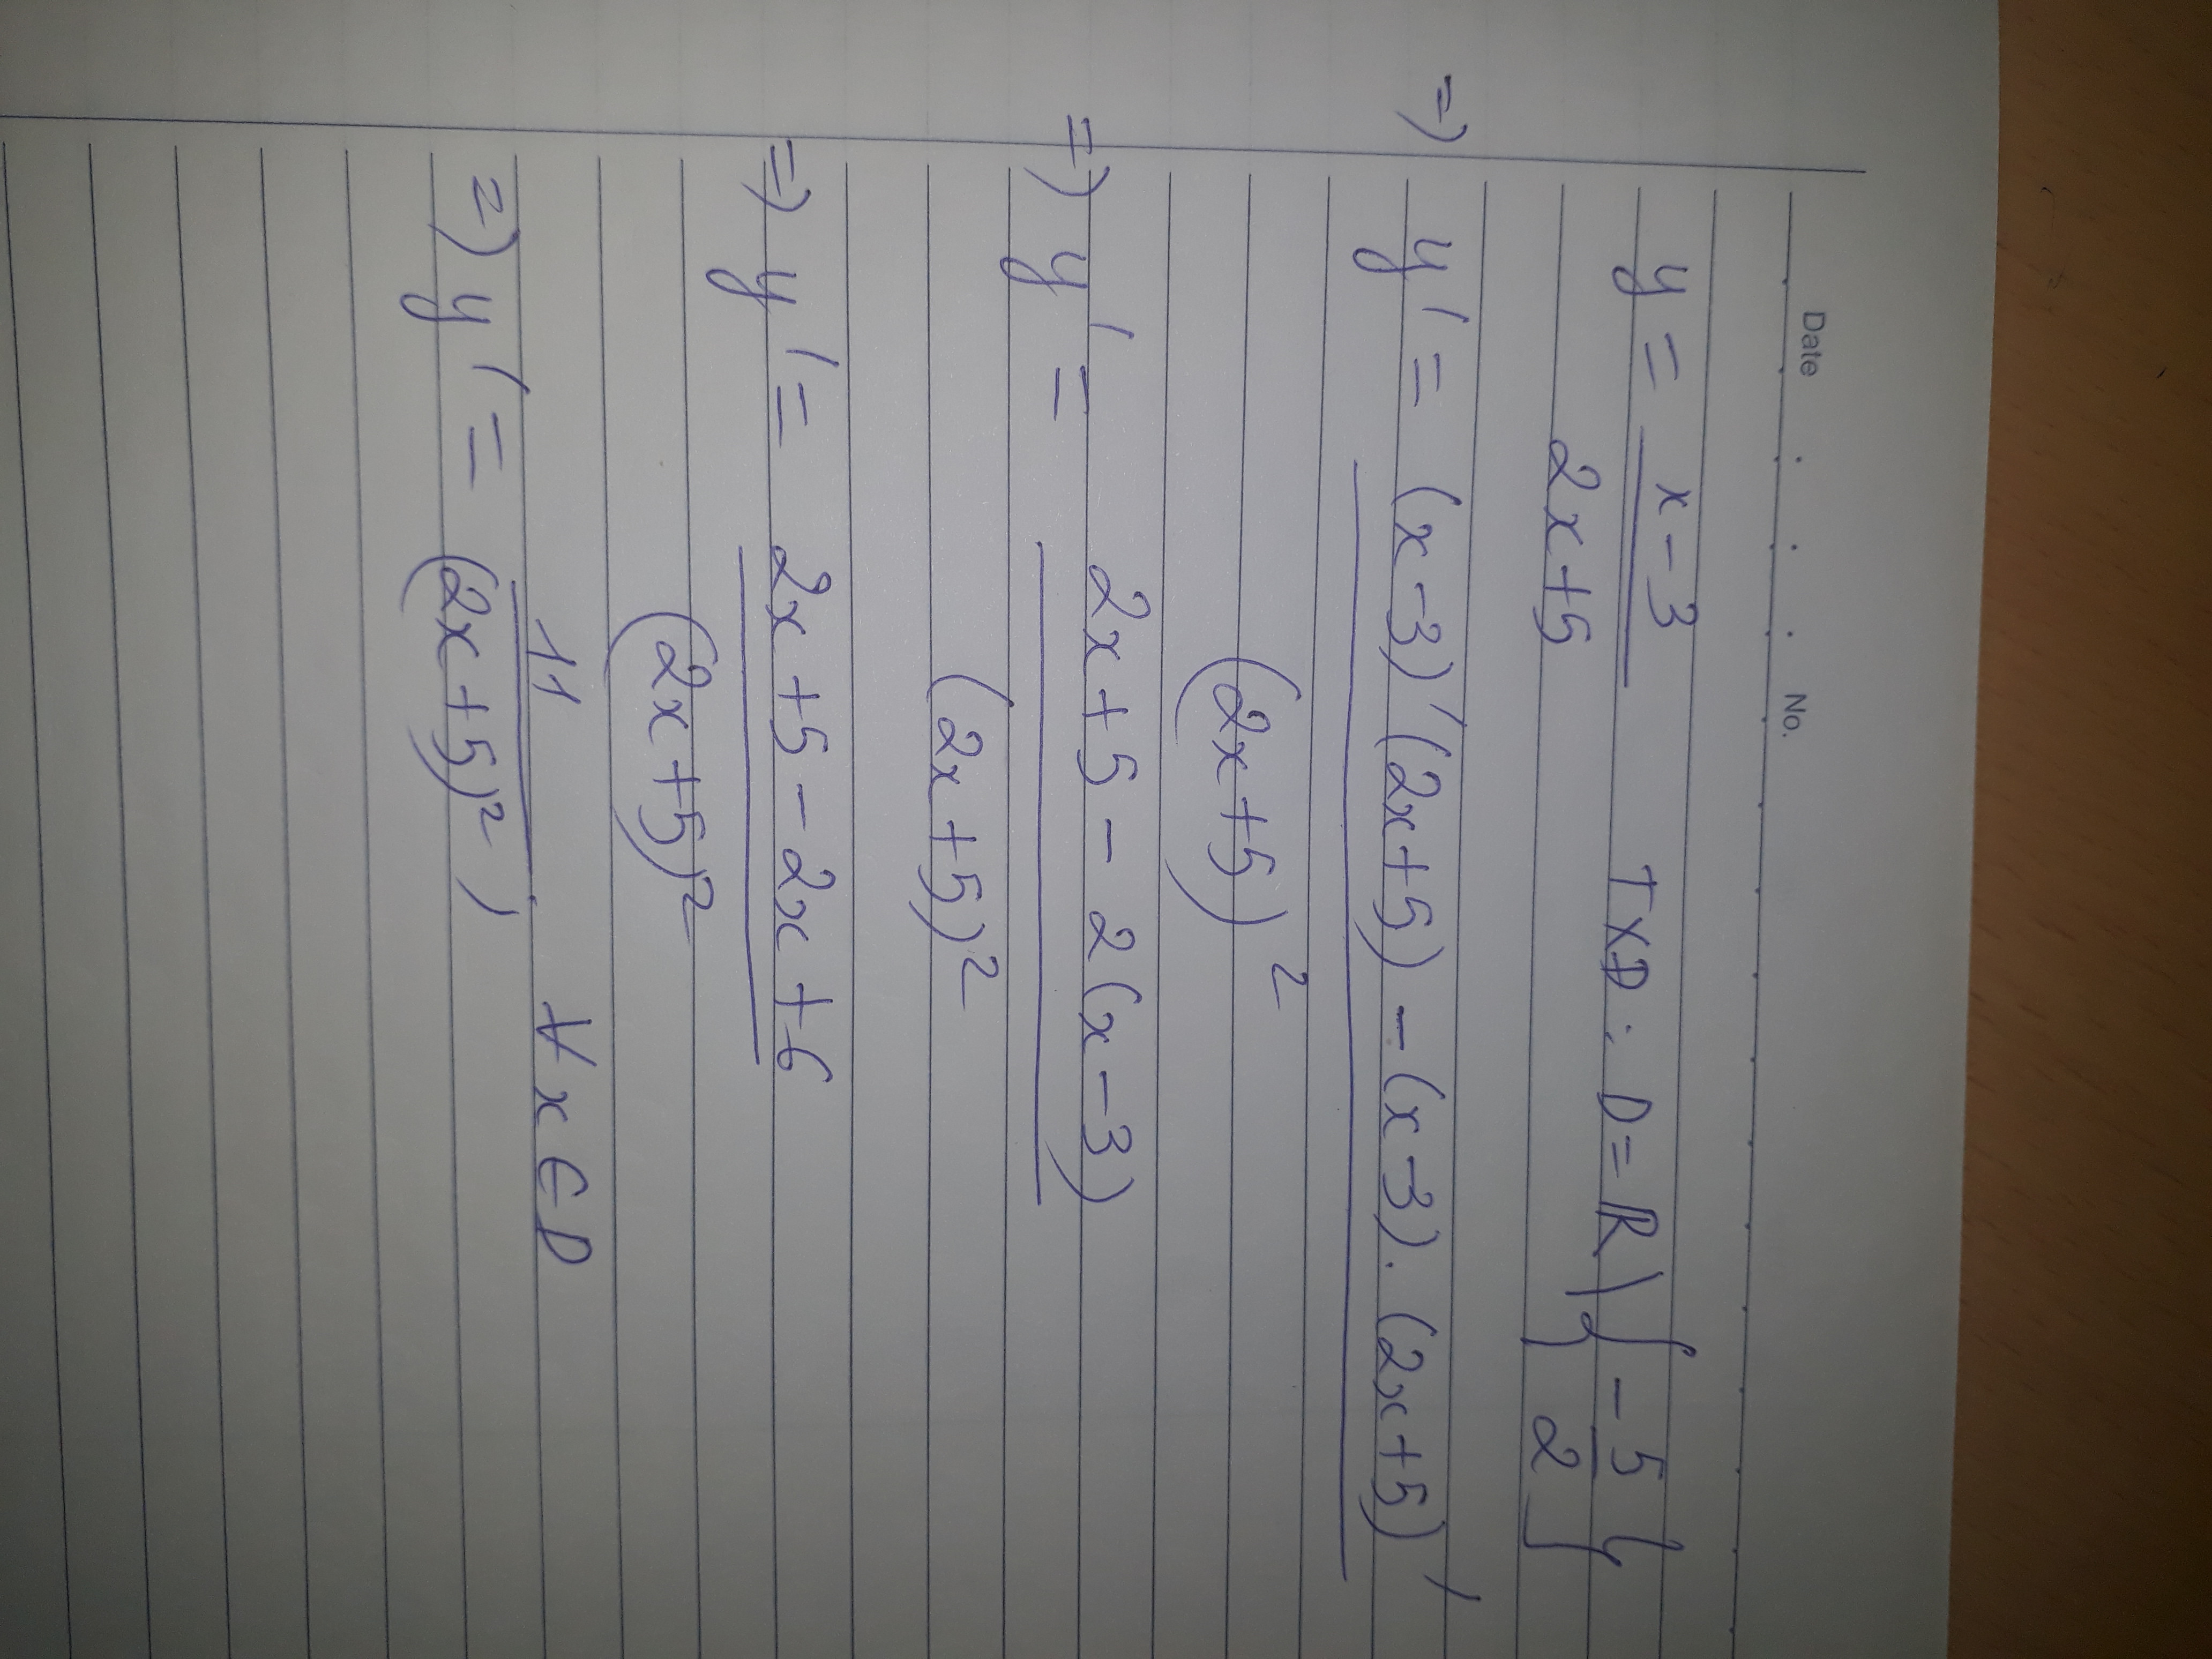 Date . . . No.
y = x-3 / 2x+5 TXĐ: D = ℝ \ { -5/2 }
=> y' = (x-3)'(2x+5) - (x-3).(2x+5)' / (2x+5)²
=> y' = 2x+5 - 2(x-3) / (2x+5)²
=> y' = 2x+5-2x+6 / (2x+5)²
=> y' = 11 / (2x+5)² , ∀x∈D